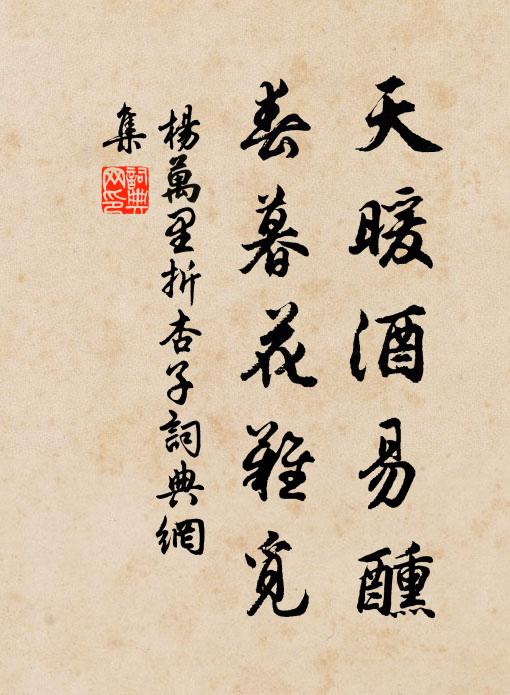 天暖酒易醺
春暮花難覓
楊萬里折杏子詞典網
集
詞典
网印